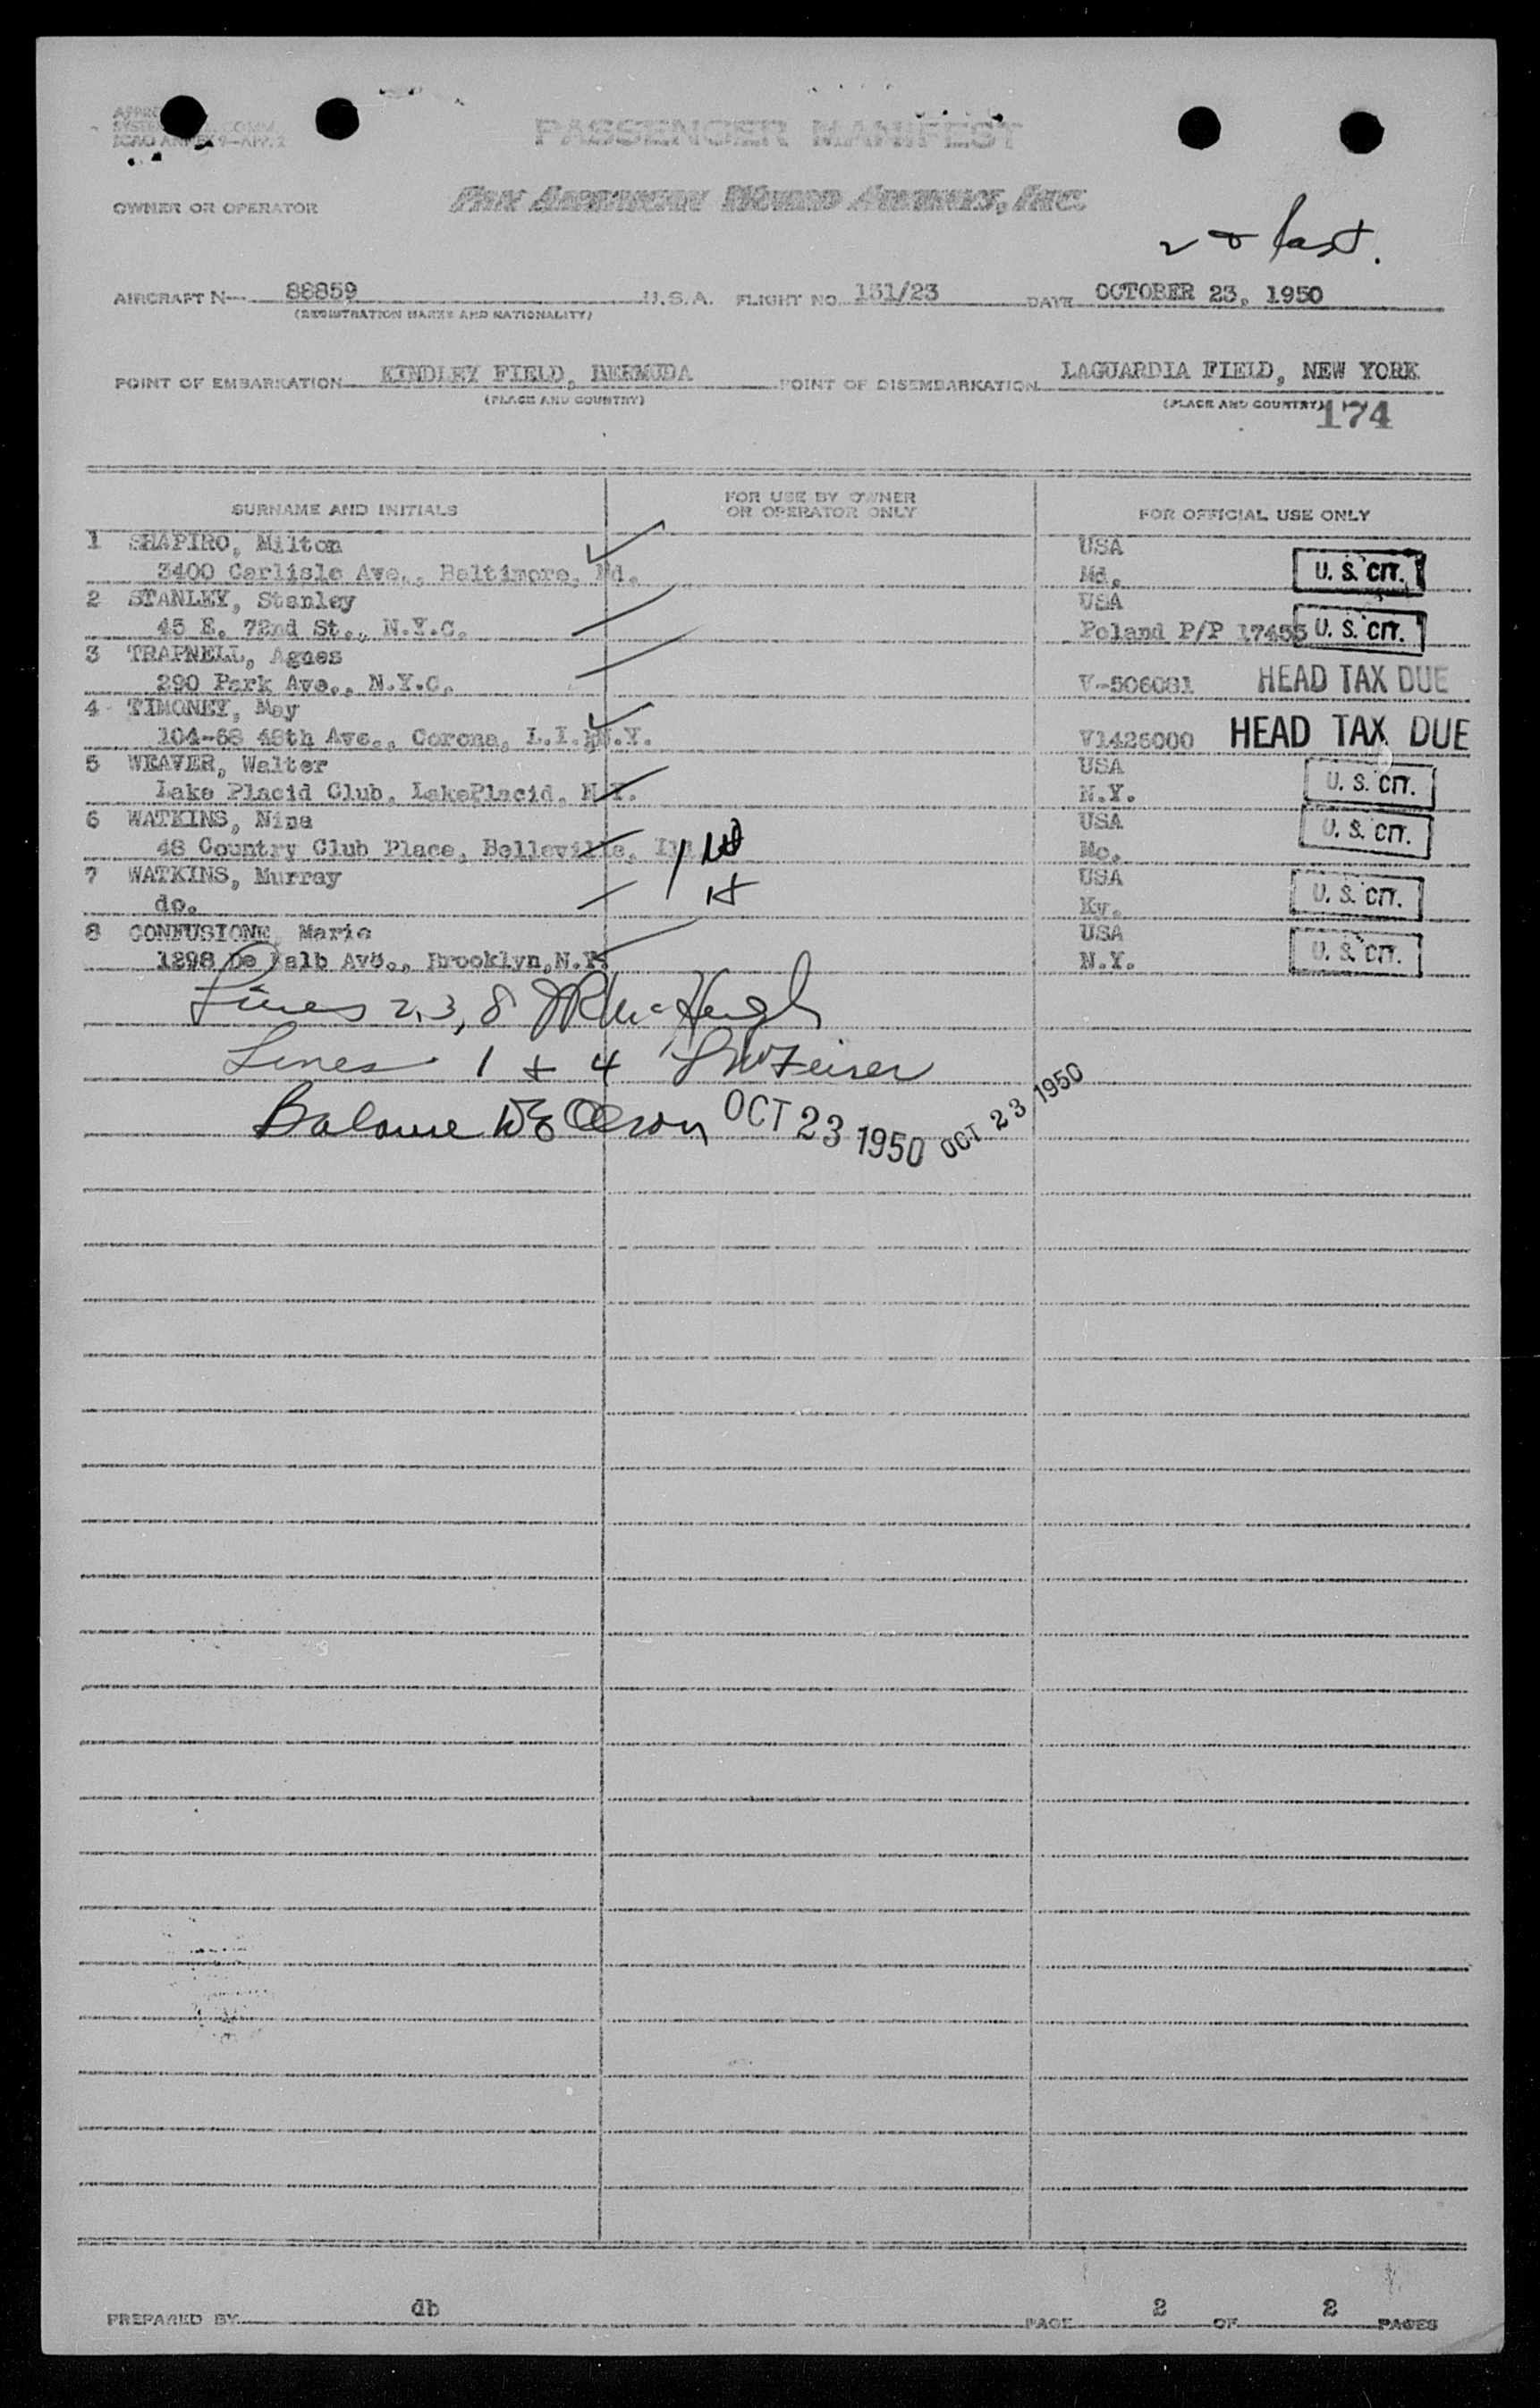 PASSENGER MANIFEST
ICAO ANNEX 9-APP. 2
OWNER OR OPERATOR PAN AMERICAN WORLD AIRWAYS, INC.
last.
AIRCRAFT N- 88859 U.S.A. FLIGHT NO. 131/23 DATE OCTOBER 23, 1950
(REGISTRATION MARKS AND NATIONALITY)
POINT OF EMBARKATION KINDLEY FIELD, BERMUDA POINT OF DISEMBARKATION LAGUARDIA FIELD, NEW YORK
(PLACE AND COUNTRY) (PLACE AND COUNTRY) 174
SURNAME AND INITIALS FOR USE BY OWNER OR OPERATOR ONLY FOR OFFICIAL USE ONLY
1 SHAPIRO, Milton USA
3400 Carlisle Ave., Baltimore, Md. Md. U. S. CIT.
2 STANLEY, Stanley USA
45 E. 72nd St., N.Y.C. Poland P/P 17455 U. S. CIT.
3 TRAPNELL, Agnes
290 Park Ave., N.Y.C. V-506081 HEAD TAX DUE
4 TIMONEY, May
104-68 48th Ave., Corona, L.I. N.Y. V1426000 HEAD TAX DUE
5 WEAVER, Walter USA
Lake Placid Club, LakePlacid, N.Y. N.Y. U. S. CIT.
6 WATKINS, Nina USA
48 Country Club Place, Belleville, Ill Mo. U. S. CIT.
7 WATKINS, Murray USA
do. Ky. U. S. CIT.
8 CONFUSIONE, Marie USA
1298 De Kalb Ave., Brooklyn, N.Y. N.Y. U. S. CIT.
Lines 2, 3, 8 JR McHugh
Lines 1 & 4
Balance OCT 23 1950 OCT 23 1950
PREPARED BY db PAGE 2 OF 2 PAGES